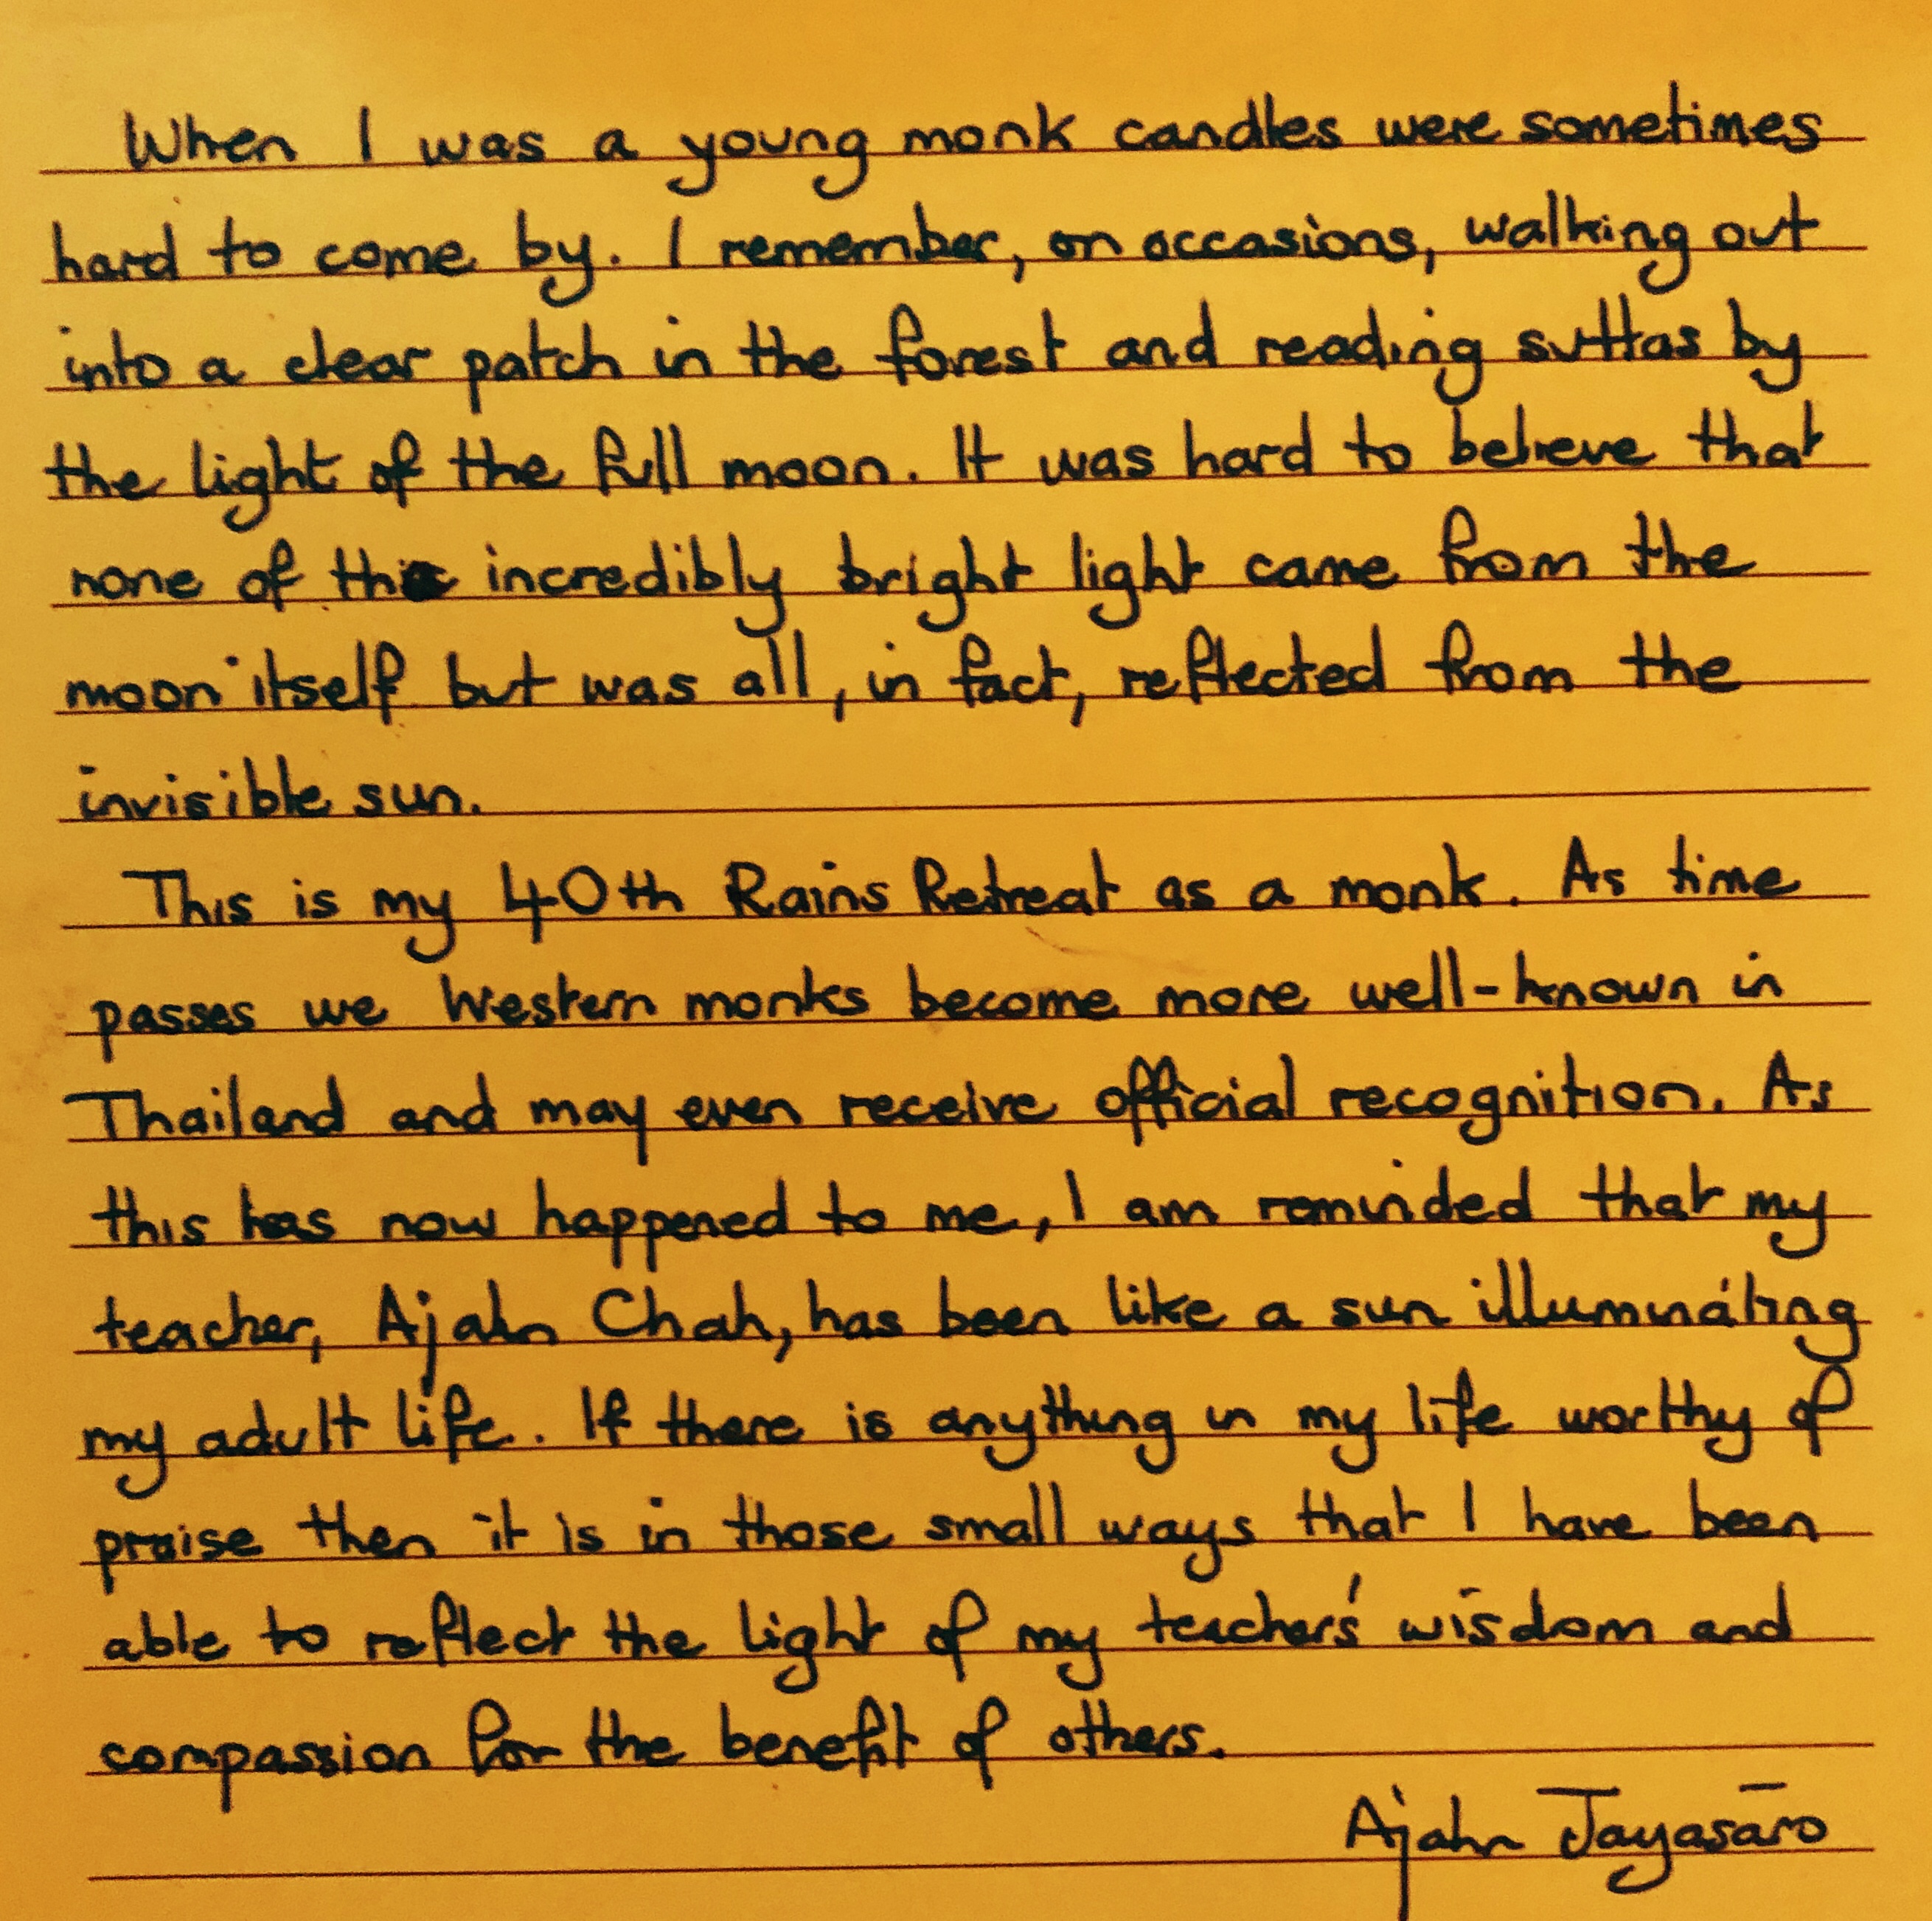 When I was a young monk candles were sometimes
hard to come by. I remember, on occasions, walking out
into a clear patch in the forest and reading suttas by
the light of the full moon. It was hard to believe that
none of this incredibly bright light came from the
moon itself but was all, in fact, reflected from the
invisible sun.
This is my 40th Rains Retreat as a monk. As time
passes we Western monks become more well-known in
Thailand and may even receive official recognition. As
this has now happened to me, I am reminded that my
teacher, Ajahn Chah, has been like a sun illuminating
my adult life. If there is anything in my life worthy of
praise then it is in those small ways that I have been
able to reflect the light of my teacher's wisdom and
compassion for the benefit of others.
Ajahn Jayasāro